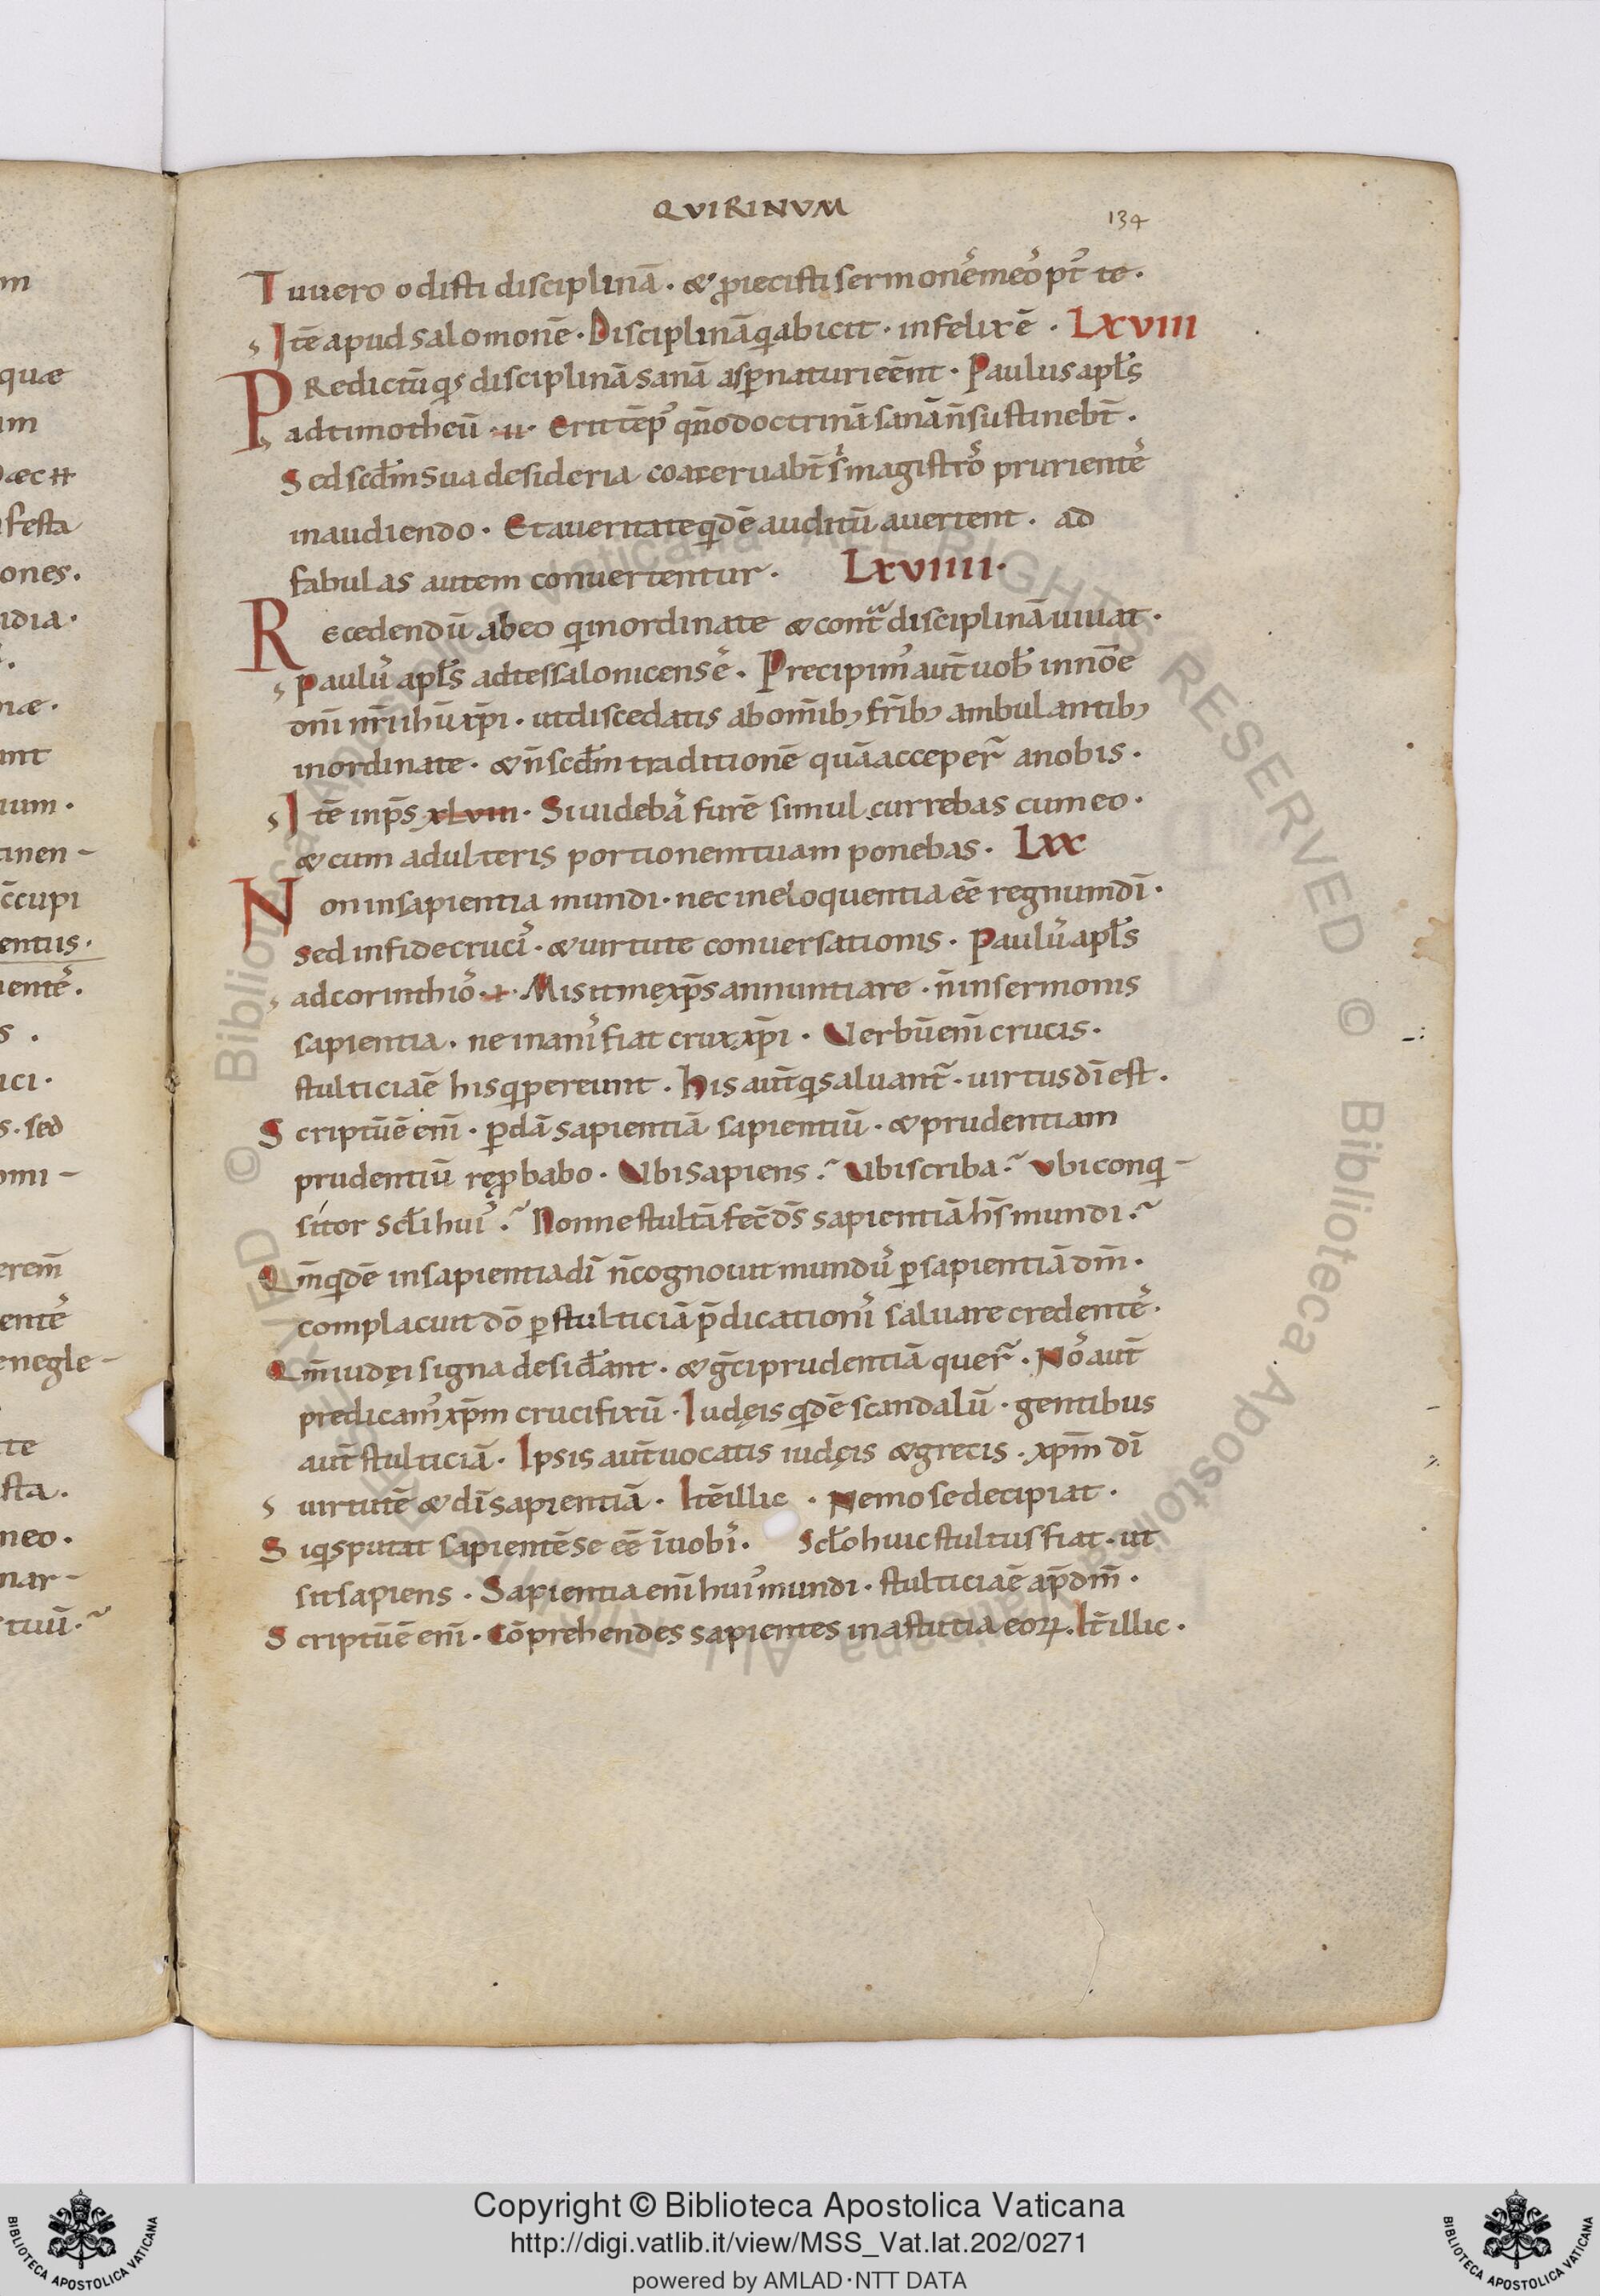 QVIRINVM
134
Tu uero odisti disciplinā · & ꝓiecisti sermonēs meos pꝰt te ·
Itē apud salomonē · Disciplinā q̇ abicit · infelix ē · LXVIII
PRedictū qđ disciplinā sanā asꝑnaturi eēnt · Paulus apłs
ad timotheū · II · Erit tēpꝰ qn̄o doctrinā sanā n̄ sustinebt̄ ·
Sed scđm sua desideria coaceruabt̄ s' magistroˢ prurienteˢ
in audiendo · Et a ueritate qdē auditū auertent · ad
fabulas autem conuertentur · LXVIIII ·
Recedendū ab eo q' inordinate & cont͂ disciplinā uiuat ·
Paulus apłs ad tessalonicenseˢ · Precipimꝰ aut̄ uob̄ in nōe
dnī nr̄i ihū xp̄i · ut discedatis ab om̄ibꝫ fr̄ibꝫ ambulantibꝫ
inordinate · & n̄ scđm traditionē quā acceper̄ a nobis ·
Itē in ps̄ xlviii · Si uidebaˢ furē simul currebas cum eo ·
& cum adulteris portionem tuam ponebas · LXX
Non in sapientia mundi · nec in eloquentia eē regnum dī ·
sed in fide cruciˢ · & uirtute conuersationis · Paulus apłs
ad corinthioˢ · I · Misit me xp̄s annuntiare · n̄ in sermonis
sapientia · ne inaniˢ fiat crux xp̄i · Verbū enī crucis ·
stulticia ē his q' pereunt · his aut̄ q' saluant̄ · uirtus dī est ·
Scriptū ē enī · ꝑdā sapientiā sapientiū · & prudentiam
prudentiū reꝓbabo · Vbi sapiens ? Vbi scriba ? Vbi conq'-
sitor scłi huiꝰ ? Nonne stultā fec̄ ds̄ sapientiā hˢ mundi ?
Qm̄ qdē in sapientia dī n̄ cognouit mundus ꝑ sapientiā dm̄ ·
complacuit dō ꝑ stulticiā p̄dicationiˢ saluare credenteˢ ·
Qm̄ iudęi signa desid̄ant · & ḡci prudentiā quer̄ · Noˢ aut̄
predicamꝰ xp̄m crucifixū · Iudęis qdē scandalū · gentibus
aut̄ stulticiā · Ipsis aut̄ uocatis iudęis & grecis · xp̄m dī
uirtutē & dī sapientiā · Itē illic · Nemo se decipiat ·
Si qs putat sapientē se eē ī uobiˢ · Scło huic stultus fiat · ut
sit sapiens · Sapientia enī huiꝰ mundi · stulticia ē ap̄ dm̄ ·
Scriptū ē enī · Cōprehendes sapientes in astutia eoꝝ . It̄ illic ·
Copyright © Biblioteca Apostolica Vaticana
http://digi.vatlib.it/view/MSS_Vat.lat.202/0271
powered by AMLAD·NTT DATA